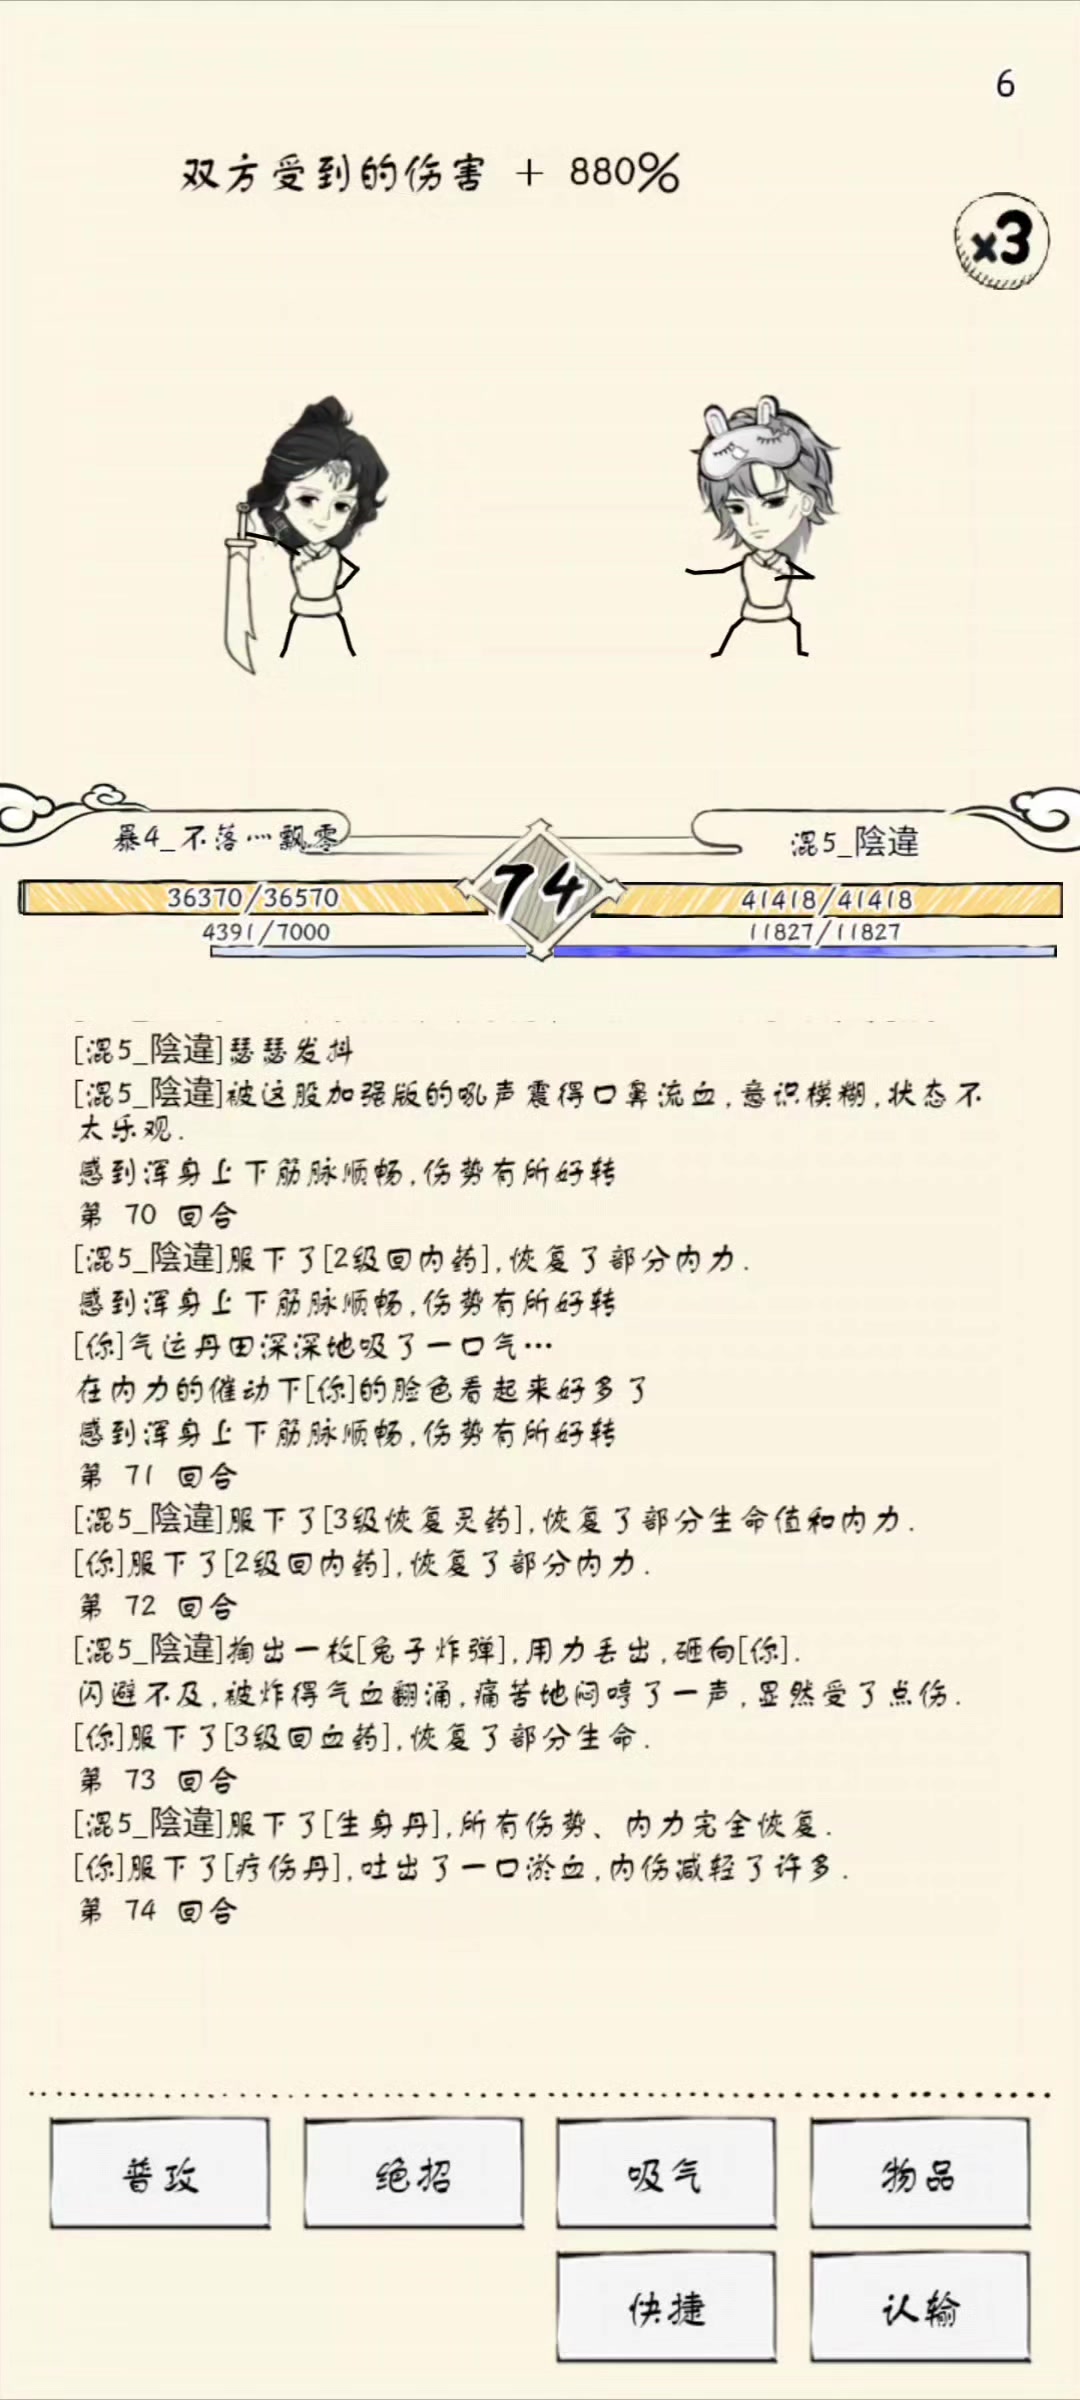 6
双方受到的伤害 + 880%
x3
暴4_不落…飘零
混5_陰違
74
36370/36570
41418/41418
4391/7000
11827/11827
[混5_陰違]瑟瑟发抖
[混5_陰違]被这股加强版的吼声震得口鼻流血,意识模糊,状态不
太乐观.
感到浑身上下筋脉顺畅,伤势有所好转
第 70 回合
[混5_陰違]服下了[2级回内药],恢复了部分内力.
感到浑身上下筋脉顺畅,伤势有所好转
[你]气运丹田深深地吸了一口气…
在内力的催动下[你]的脸色看起来好多了
感到浑身上下筋脉顺畅,伤势有所好转
第 71 回合
[混5_陰違]服下了[3级恢复灵药],恢复了部分生命值和内力.
[你]服下了[2级回内药],恢复了部分内力.
第 72 回合
[混5_陰違]掏出一枚[兔子炸弹],用力丢出,砸向[你].
闪避不及,被炸得气血翻涌,痛苦地闷哼了一声,显然受了点伤.
[你]服下了[3级回血药],恢复了部分生命.
第 73 回合
[混5_陰違]服下了[生身丹],所有伤势、内力完全恢复.
[你]服下了[疗伤丹],吐出了一口淤血,内伤减轻了许多.
第 74 回合
普攻
绝招
吸气
物品
快捷
认输